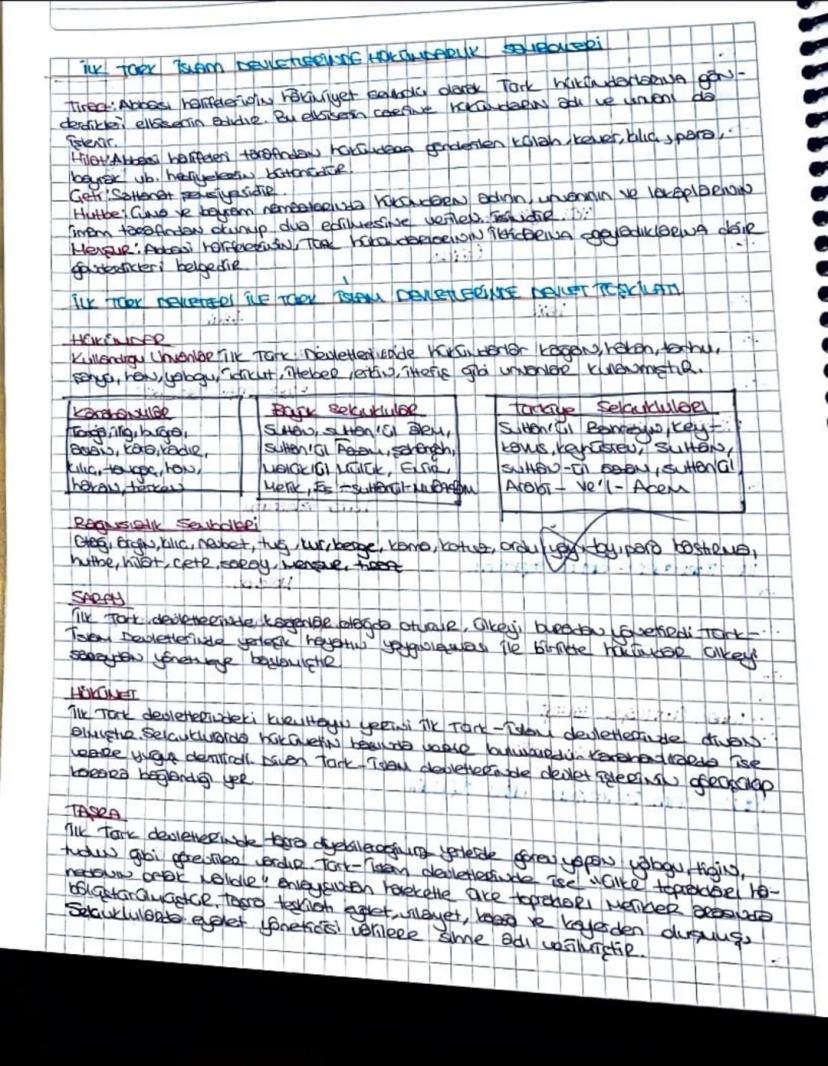 İLK TÜRK İSLAM DEVLETLERİNDE HÜKÜMDARLIK SEMBOLLERİ
Tiraz: Abbasi halifelerinin hakimiyet sembolü olarak Türk hükümdarlarına gön-
derdikleri elbisenin adıdır. Bu elbisenin üzerine hükümdarın adı ve unvanı da
işlenir.
Hilat: Abbasi halifeleri tarafından hükümdara gönderilen külah, kemer, kılıç, para,
bayrak vb. hediyelerin bütünüdür.
Çetr: Saltanat şemsiyesidir.
Hutbe: Cuma ve bayram namazlarında hükümdarın adının, unvanının ve lakaplarının
imam tarafından okunup dua edilmesine verilen isimdir.
Menşur: Abbasi halifesinin, Türk hükümdarlarının iktidarlarına onayladıklarına dair
gönderdikleri belgedir.
İLK TÜRK DEVLETLERİ İLE TÜRK İSLAM DEVLETLERİNDE DEVLET TEŞKİLATI
HÜKÜMDAR
Kullandığı Unvanlar: İlk Türk Devletlerinde hükümdarlar kağan, hakan, tanhu,
şanyü, han, yabgu, idikut, ilteber, erkin, ilteriş gibi unvanlar kullanmıştır.
Karahanlılar
Tonga, ilig, buğra,
arslan, kara, kadir,
kılıç, tavgaç, han,
hakan, terken
Büyük Selçuklular
Sultan, sultan'ül Alem,
Sultan'ül Azam, şehinşah,
Melik'ül Mülük, Emir,
Melik, Es-sultanül-Muazzam
Türkiye Selçukluları
Sultan'ül Berreyn, Key-
kavus, keyhüsrev, sultan,
sultan-ül azam, sultan'ül
Arabi- ve'l- Acem
Bağımsızlık Sembolleri
Otağ, örgin, kılıç, nevbet, tuğ, kur, berge, kama, kotuz, ordu, yay, toy, para bastırma,
hutbe, hilat, çetr, saray, menşur, tiraz
SARAY
İlk Türk devletlerinde kağanlar otağda oturur, ülkeyi buradan yönetirdi. Türk-
İslam Devletlerinde yerleşik hayatın yaygınlaşması ile birlikte hükümdar ülkeyi
saraydan yönetmeye başlamıştır.
HÜKÜMET
İlk Türk devletlerindeki kurultayın yerini ilk Türk-İslam devletlerinde divan
almıştır. Selçuklularda hükümetin başında vezir bulunurdu. Karahanlılarda ise
vezire yuğruş denilirdi. Divan Türk-İslam devletlerinde devlet işlerinin görüşülüp
karara bağlandığı yer
TAŞRA
İlk Türk devletlerinde taşra diyebileceğimiz yerlerde görev yapan yabgu, tigin,
tudun gibi görevliler vardır. Türk-İslam devletlerinde ise "ülke toprakları ha-
nedanın ortak malıdır" anlayışından hareketle ülke toprakları melikler arasında
bölüştürülmüştür. Taşra teşkilatı eyalet, vilayet, kaza ve köylerden oluşmuş,
Selçuklularda eyalet yöneticisi valilere şıhne adı verilmiştir.